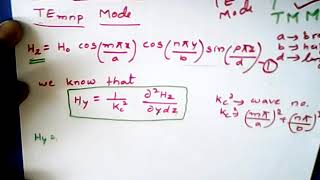 TEmnp Mode
Mode
TM M
Hz = Ho cos(mπx/a) cos(nπy/b) sin(pπz/d) — ①
a → bro
b → h
d → len
we know that
Hy = 1/kc² ∂²Hz/∂y∂z
kc² → wave no.
kc² → (mπ/a)² + (nπ/b)
Hy =